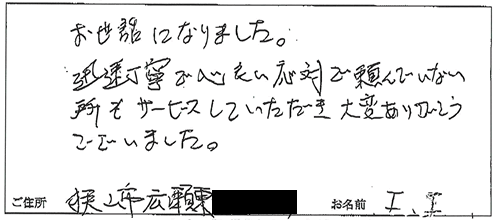 お世話になりました。
迅速丁寧で心良い応対で頼んでいない
所もサービスしていただき大変ありがとう
ございました。
ご住所 狭山市広瀬東 お名前